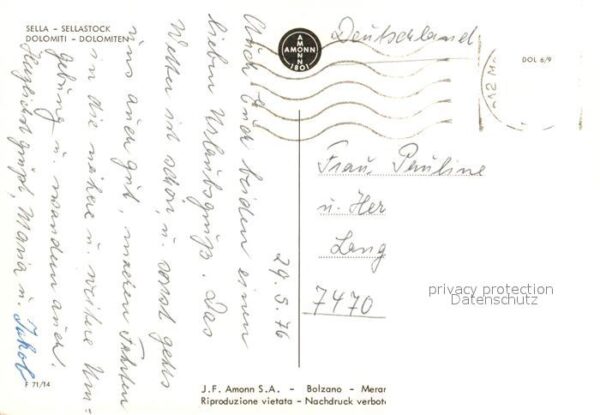 SELLA - SELLASTOCK
DOLOMITI - DOLOMITEN
AMONN
AMONN
1801
Deutschland
DOL 6/9
Auch Euch beiden einen
lieben Urlaubsgruß. Das
Wetter ist schön, u. sonst gehts
uns auch gut, machen Fahrten
in die nähere u. weitere Um=
gebung u. wandern auch.
Herzlich grüßt, Maria u. Jakob
29.5.76
Frau Pauline
u. Her
Lang
7470
privacy protection
Datenschutz
F 71/14
J.F. Amonn S.A. - Bolzano - Meran
Riproduzione vietata - Nachdruck verbote